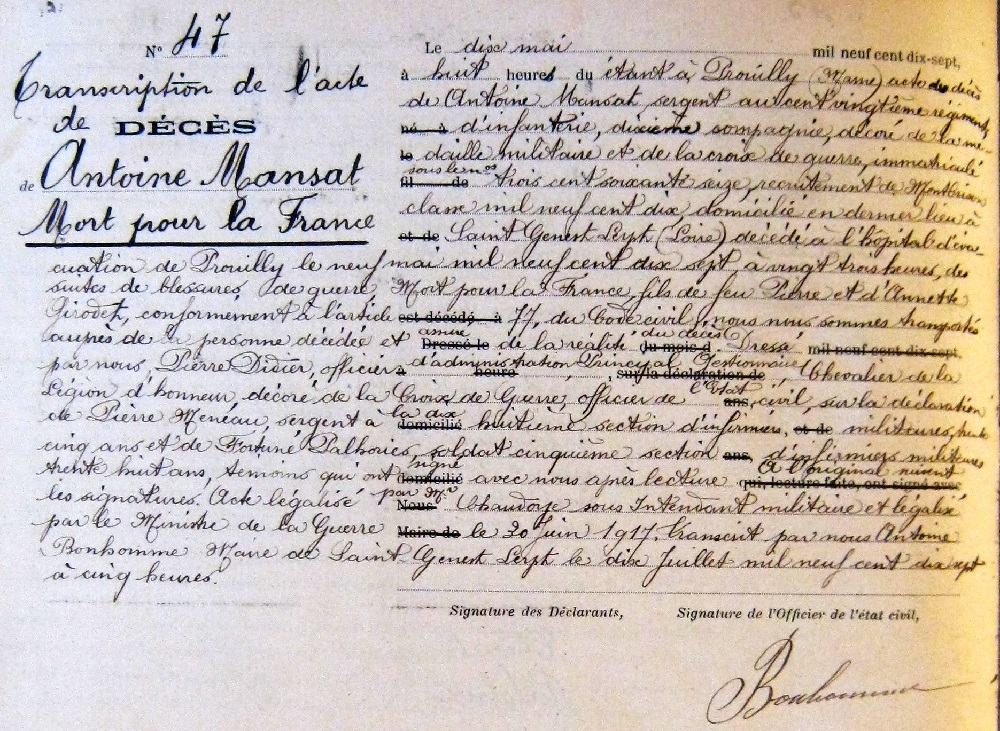 N° 47
Transcription de l'acte
de DÉCÈS
de Antoine Mansat
Mort pour la France
Le dix mai mil neuf cent dix-sept,
à huit heures du étant à Prouilly (Marne) acte de décès
de Antoine Mansat, sergent au cent vingtième régiment
né à d'infanterie, dixième compagnie, décoré de la mé-
le daille militaire et de la croix de guerre, immatriculé
sous le n°
fil de trois cent soixante seize, recrutement de Montbrison
classe mil neuf cent dix, domicilié en dernier lieu à
et de Saint Genest Lerpt (Loire) décédé à l'hôpital d'éva-
cuation de Prouilly le neuf mai mil neuf cent dix sept, à vingt trois heures, des
suites de blessures de guerre Mort pour la France, fils de feu Pierre et d'Annette
Girodet, conformément à l'article est décédé à 77, du Code civil, nous nous sommes transportés
assuré du décès
auprès de la personne décédée et Dressé le de la réalité du mois d Dressé mil neuf cent dix-sept,
d'administration Principal Gestionnaire
par nous, Pierre Didier, officier à heure , sur la déclaration de , Chevalier de la
l'état
Légion d'honneur, décoré de la Croix de Guerre, officier de ans, civil, sur la déclaration
la dix
de Pierre Meneau, sergent à domicilié huitième section d'infirmiers, et de militaires, trente
cinq ans et de Fortuné Palhories, soldat cinquième section ans, d'infirmiers militaires
signé A l'original suivent
trente huit ans, témoins qui ont domicilié avec nous après lecture qui, lecture faite, ont signé avec
par Mr
les signatures. Acte légalisé Nous Chaudoye sous Intendant militaire et légalisé
par le Ministre de la Guerre Maire de le 20 juin 1917. Transcrit par nous Antoine
Bonhomme Maire de Saint Genest Lerpt le dix Juillet mil neuf cent dix sept
à cinq heures.
Signature des Déclarants, Signature de l'Officier de l'état civil,
Bonhomme